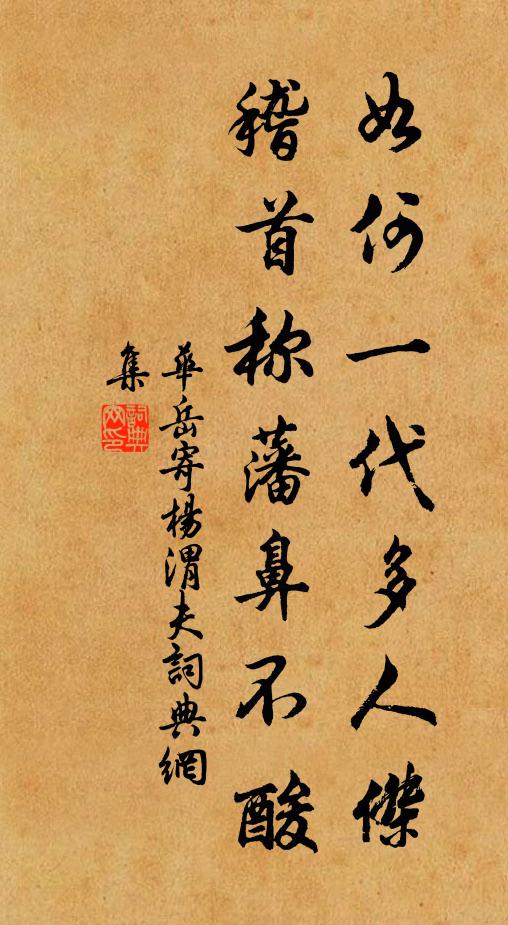 如何一代多人傑
稽首称藩鼻不酸
華岳寄楊渭夫詞典網
集
詞典網印